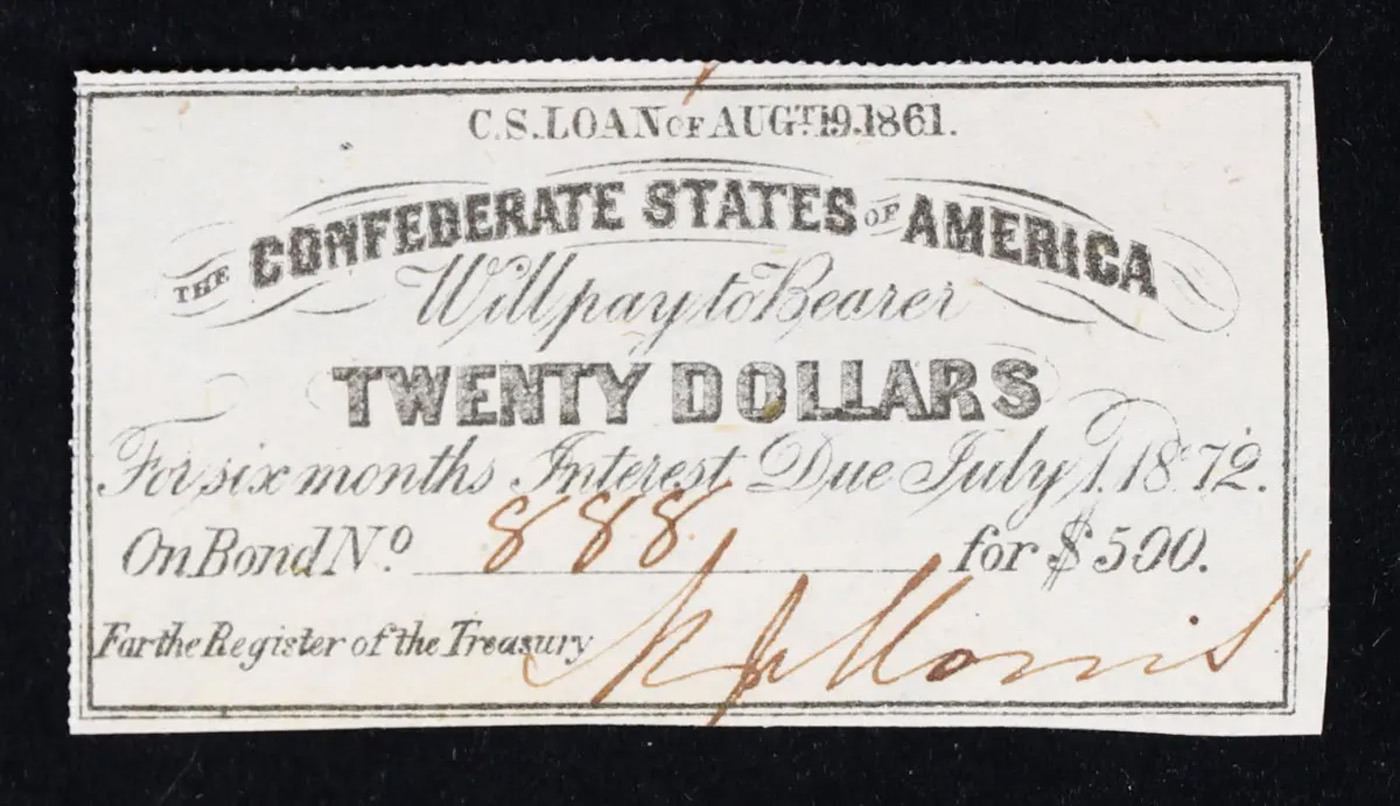 C.S. LOAN OF AUGT. 19. 1861.
THE CONFEDERATE STATES OF AMERICA
Will pay to Bearer
TWENTY DOLLARS
For six months Interest Due July 1. 1872.
On Bond No. 888 for $500.
For the Register of the Treasury Morris